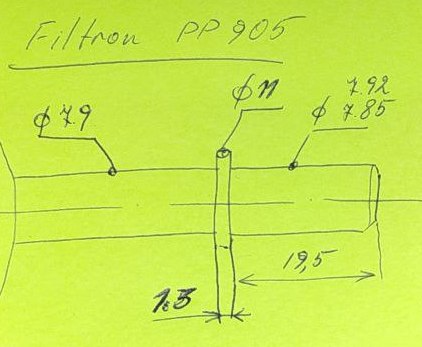 Filtron PP905
⌀ 7.9
⌀ 11
7.92
⌀ 7.85
19,5
1.5